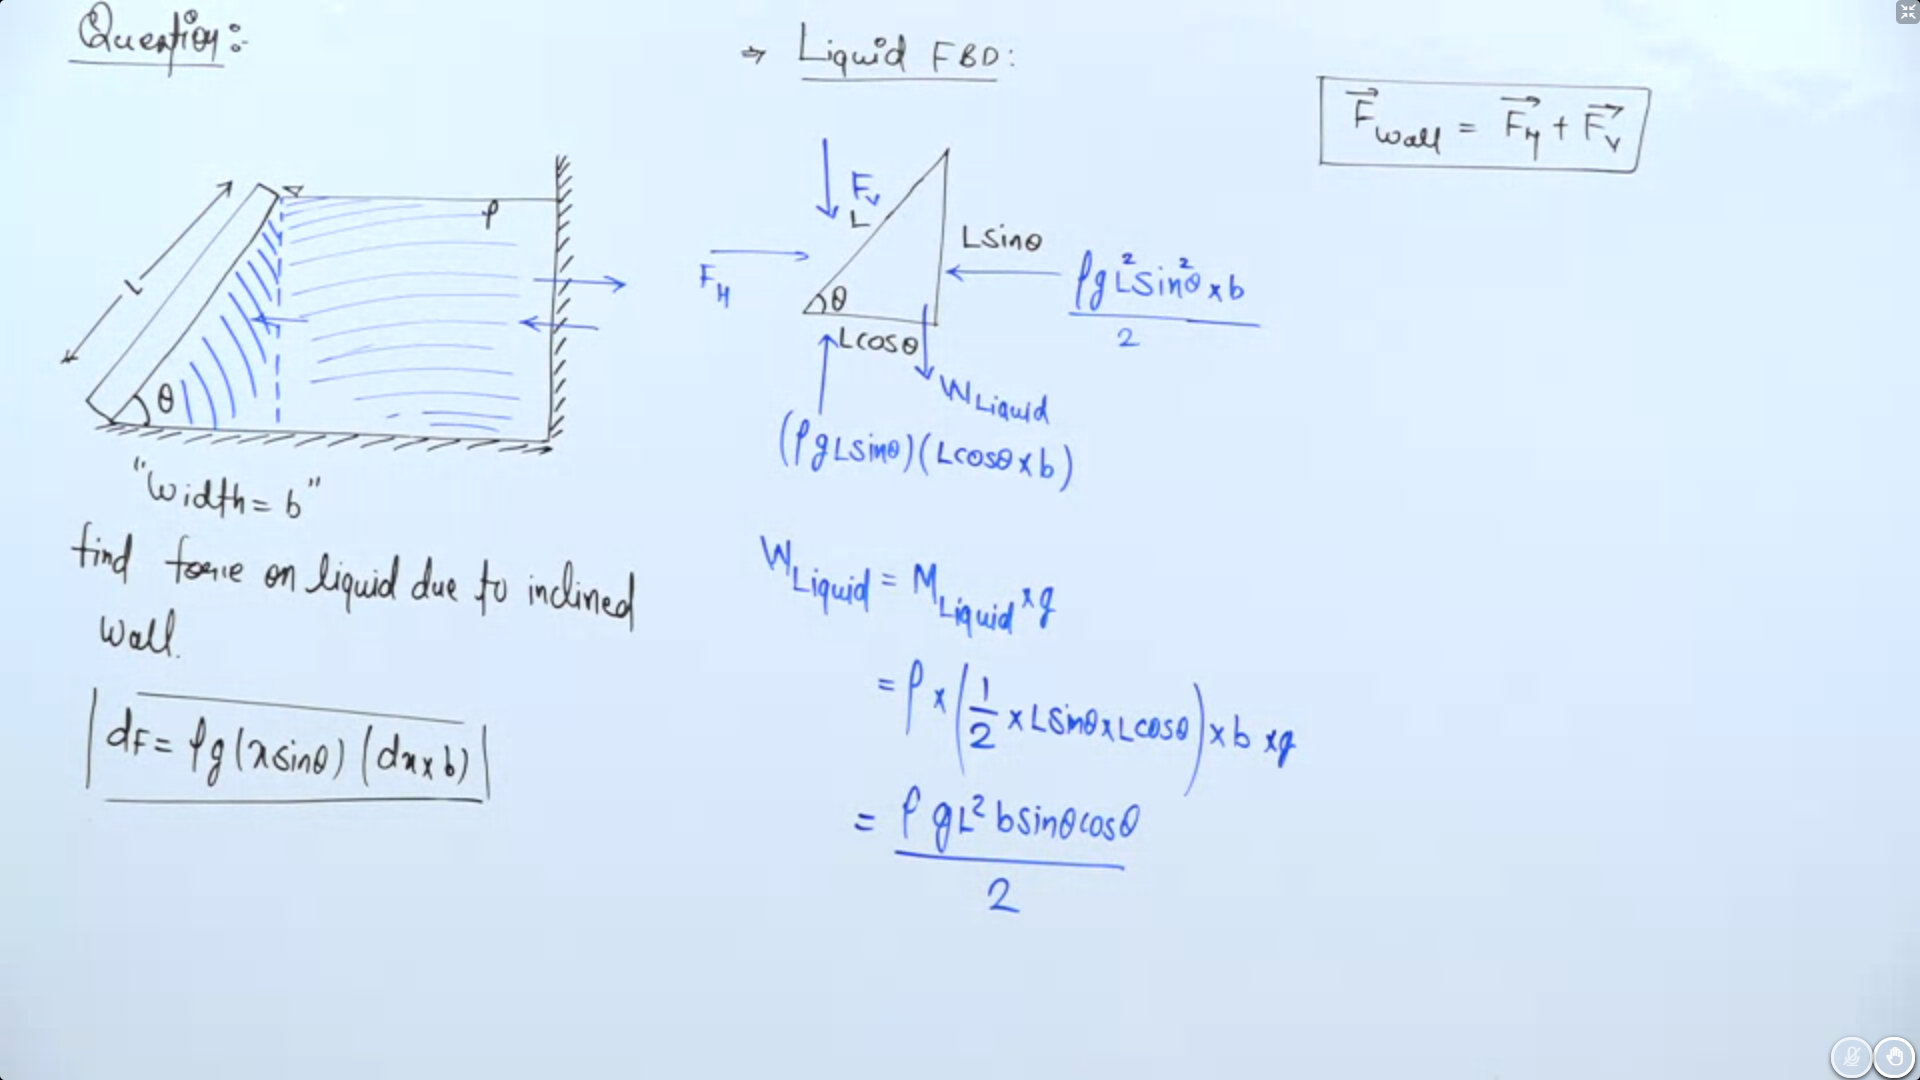 Question:-
L
ρ
θ
"width = b"
find force on liquid due to inclined
wall.
dF = ρg(x sinθ) (dx × b)
⇒ Liquid FBD:
F_V
L
L sinθ
F_H
θ
ρgL²sin²θ × b
2
L cosθ
W_Liquid
(ρgL sinθ)(L cosθ × b)
W_Liquid = M_Liquid × g
= ρ × (1/2 × L sinθ × L cosθ) × b × g
= ρgL² b sinθ cosθ
2
F⃗_wall = F⃗_H + F⃗_V